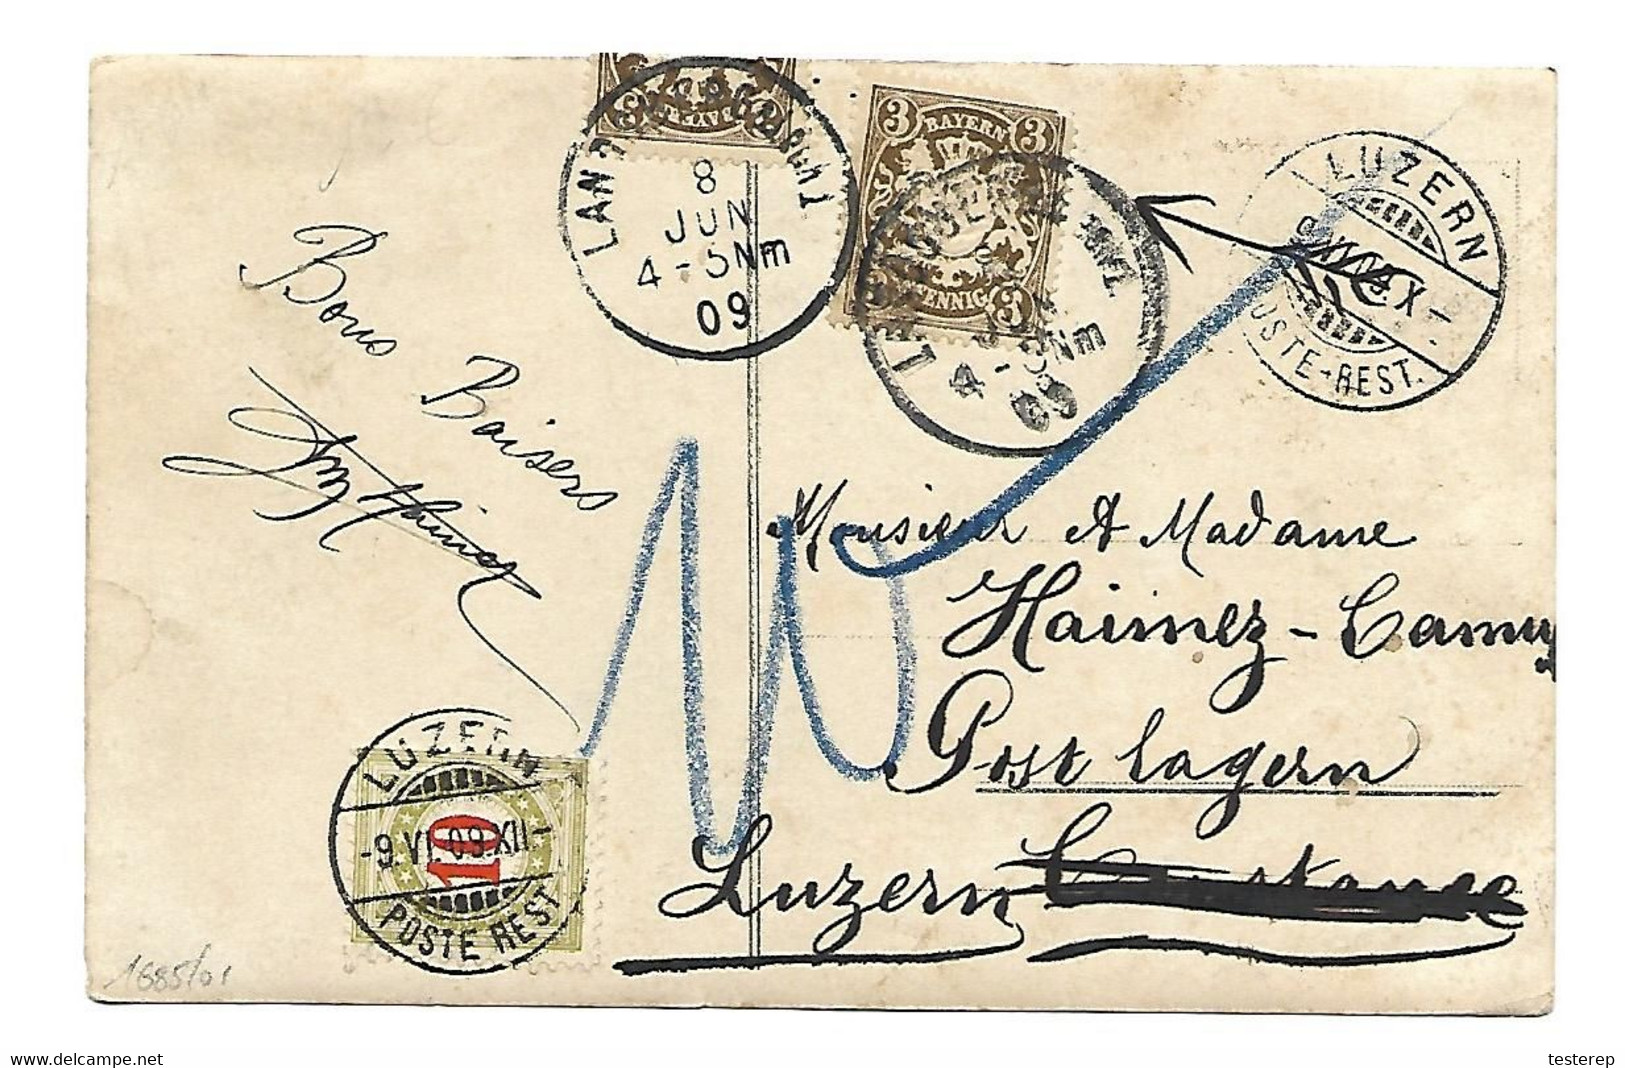 3 3
BAYERN
3 BAYERN 3
PFENNIG 3
8
JUN
4-5Nm
09
4-5Nm
09
LUZERN
POSTE-REST.
Bons Baisers
Monsieur et Madame
Haimez - Camus
Post lagern
Luzern Constance
LUZERN
-9.VI.09.XII-
10
POSTE REST.
10
1685/01
www.delcampe.net
testerep